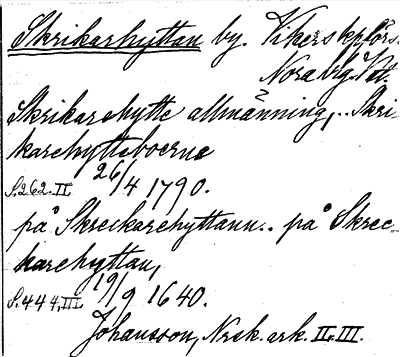 Skrikarhyttan by. Vikers kpförs.
Nora bg. Vst.
Skrikarehytte allmänning, .. Skri-
karehytteboerne
S. 262. II. 26/4 1790.
på Skreckarehyttann .. på Skrec-
karehyttan,
S. 444, III. 19/9 1640.
Johansson, Nrsk. ark. II, III.